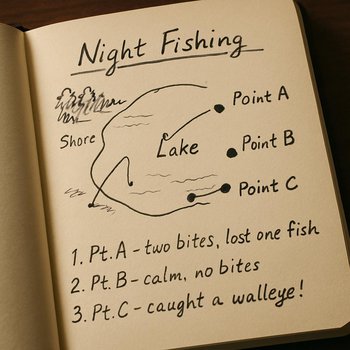 Night Fishing
Point A
Shore
Lake
Point B
Point C
1. Pt. A - two bites, lost one fish
2. Pt. B - calm, no bites
3. Pt. C - caught a walleye!